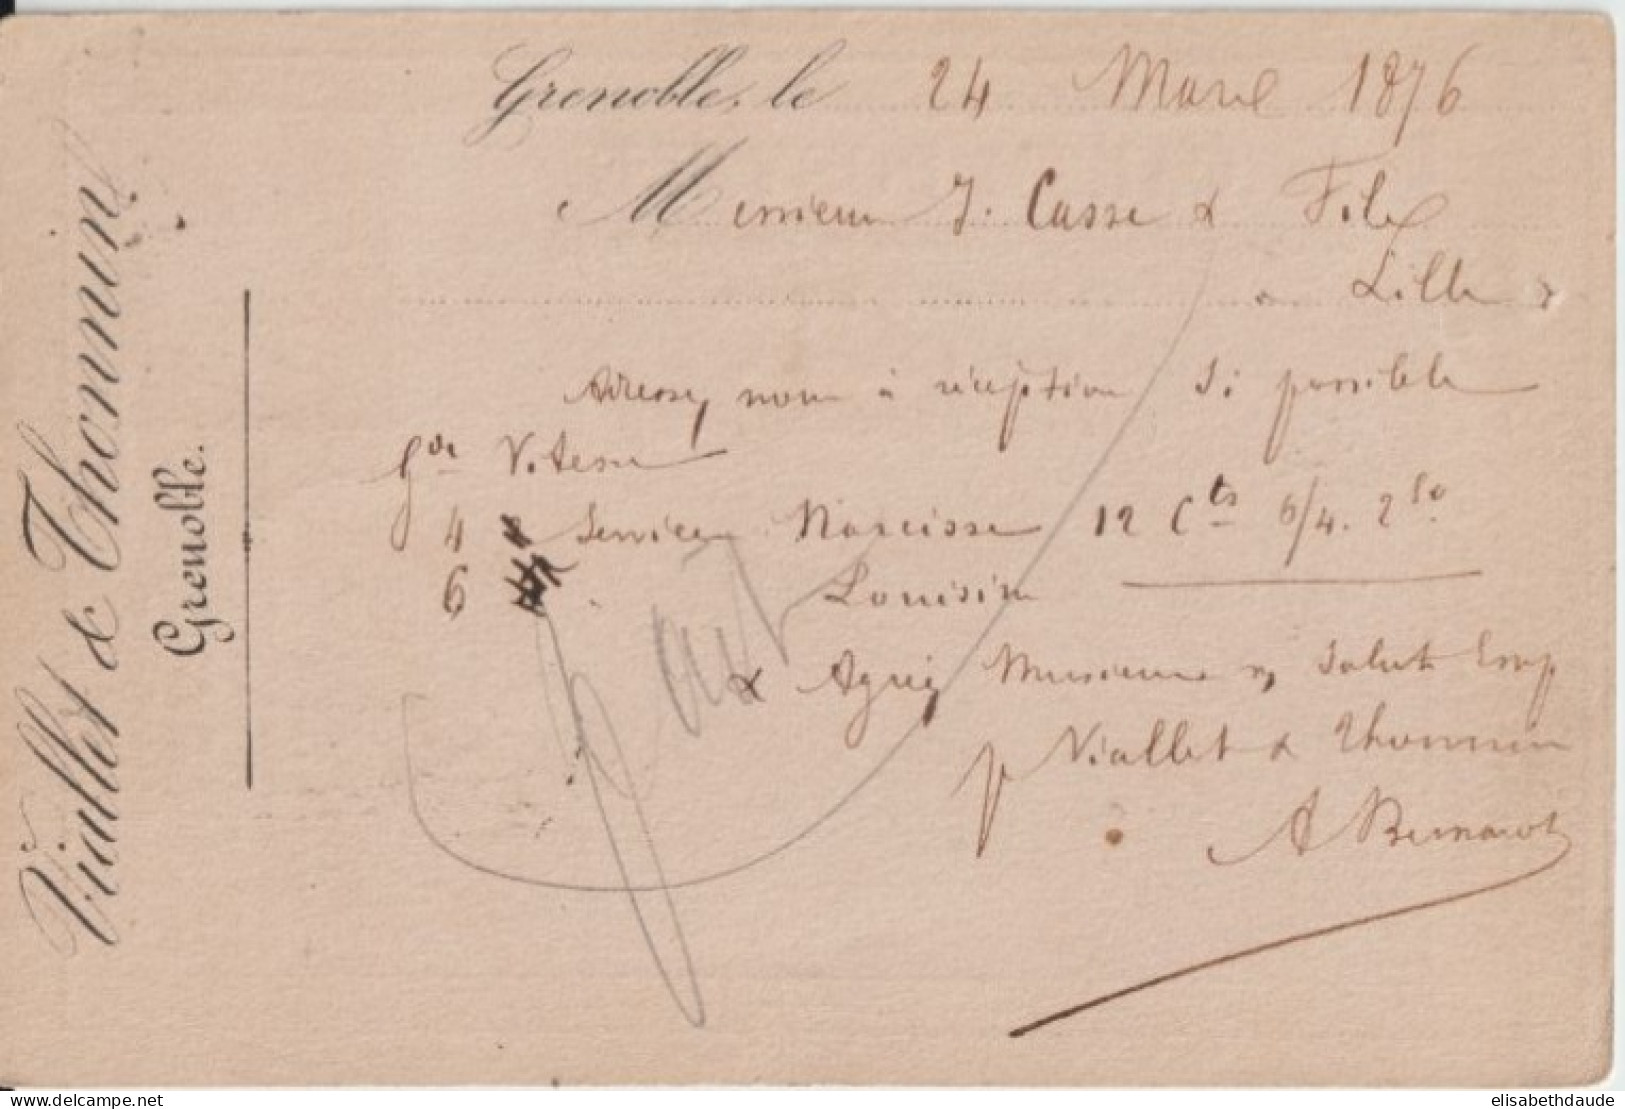 Viallet & Thonnin.
Grenoble.
Grenoble, le 24 Mars 1876
Messieurs J. Casse & Fils
à Lille
Adressez nous à réception Si possible
Gde Vitesse
4 Services Narcisse 12 Cts 6/4. 2 50
6 Louisin
& Agréez Messieurs n/ Salut Emp
p Viallet & Thonnin
A Bernard
elisabethdaude